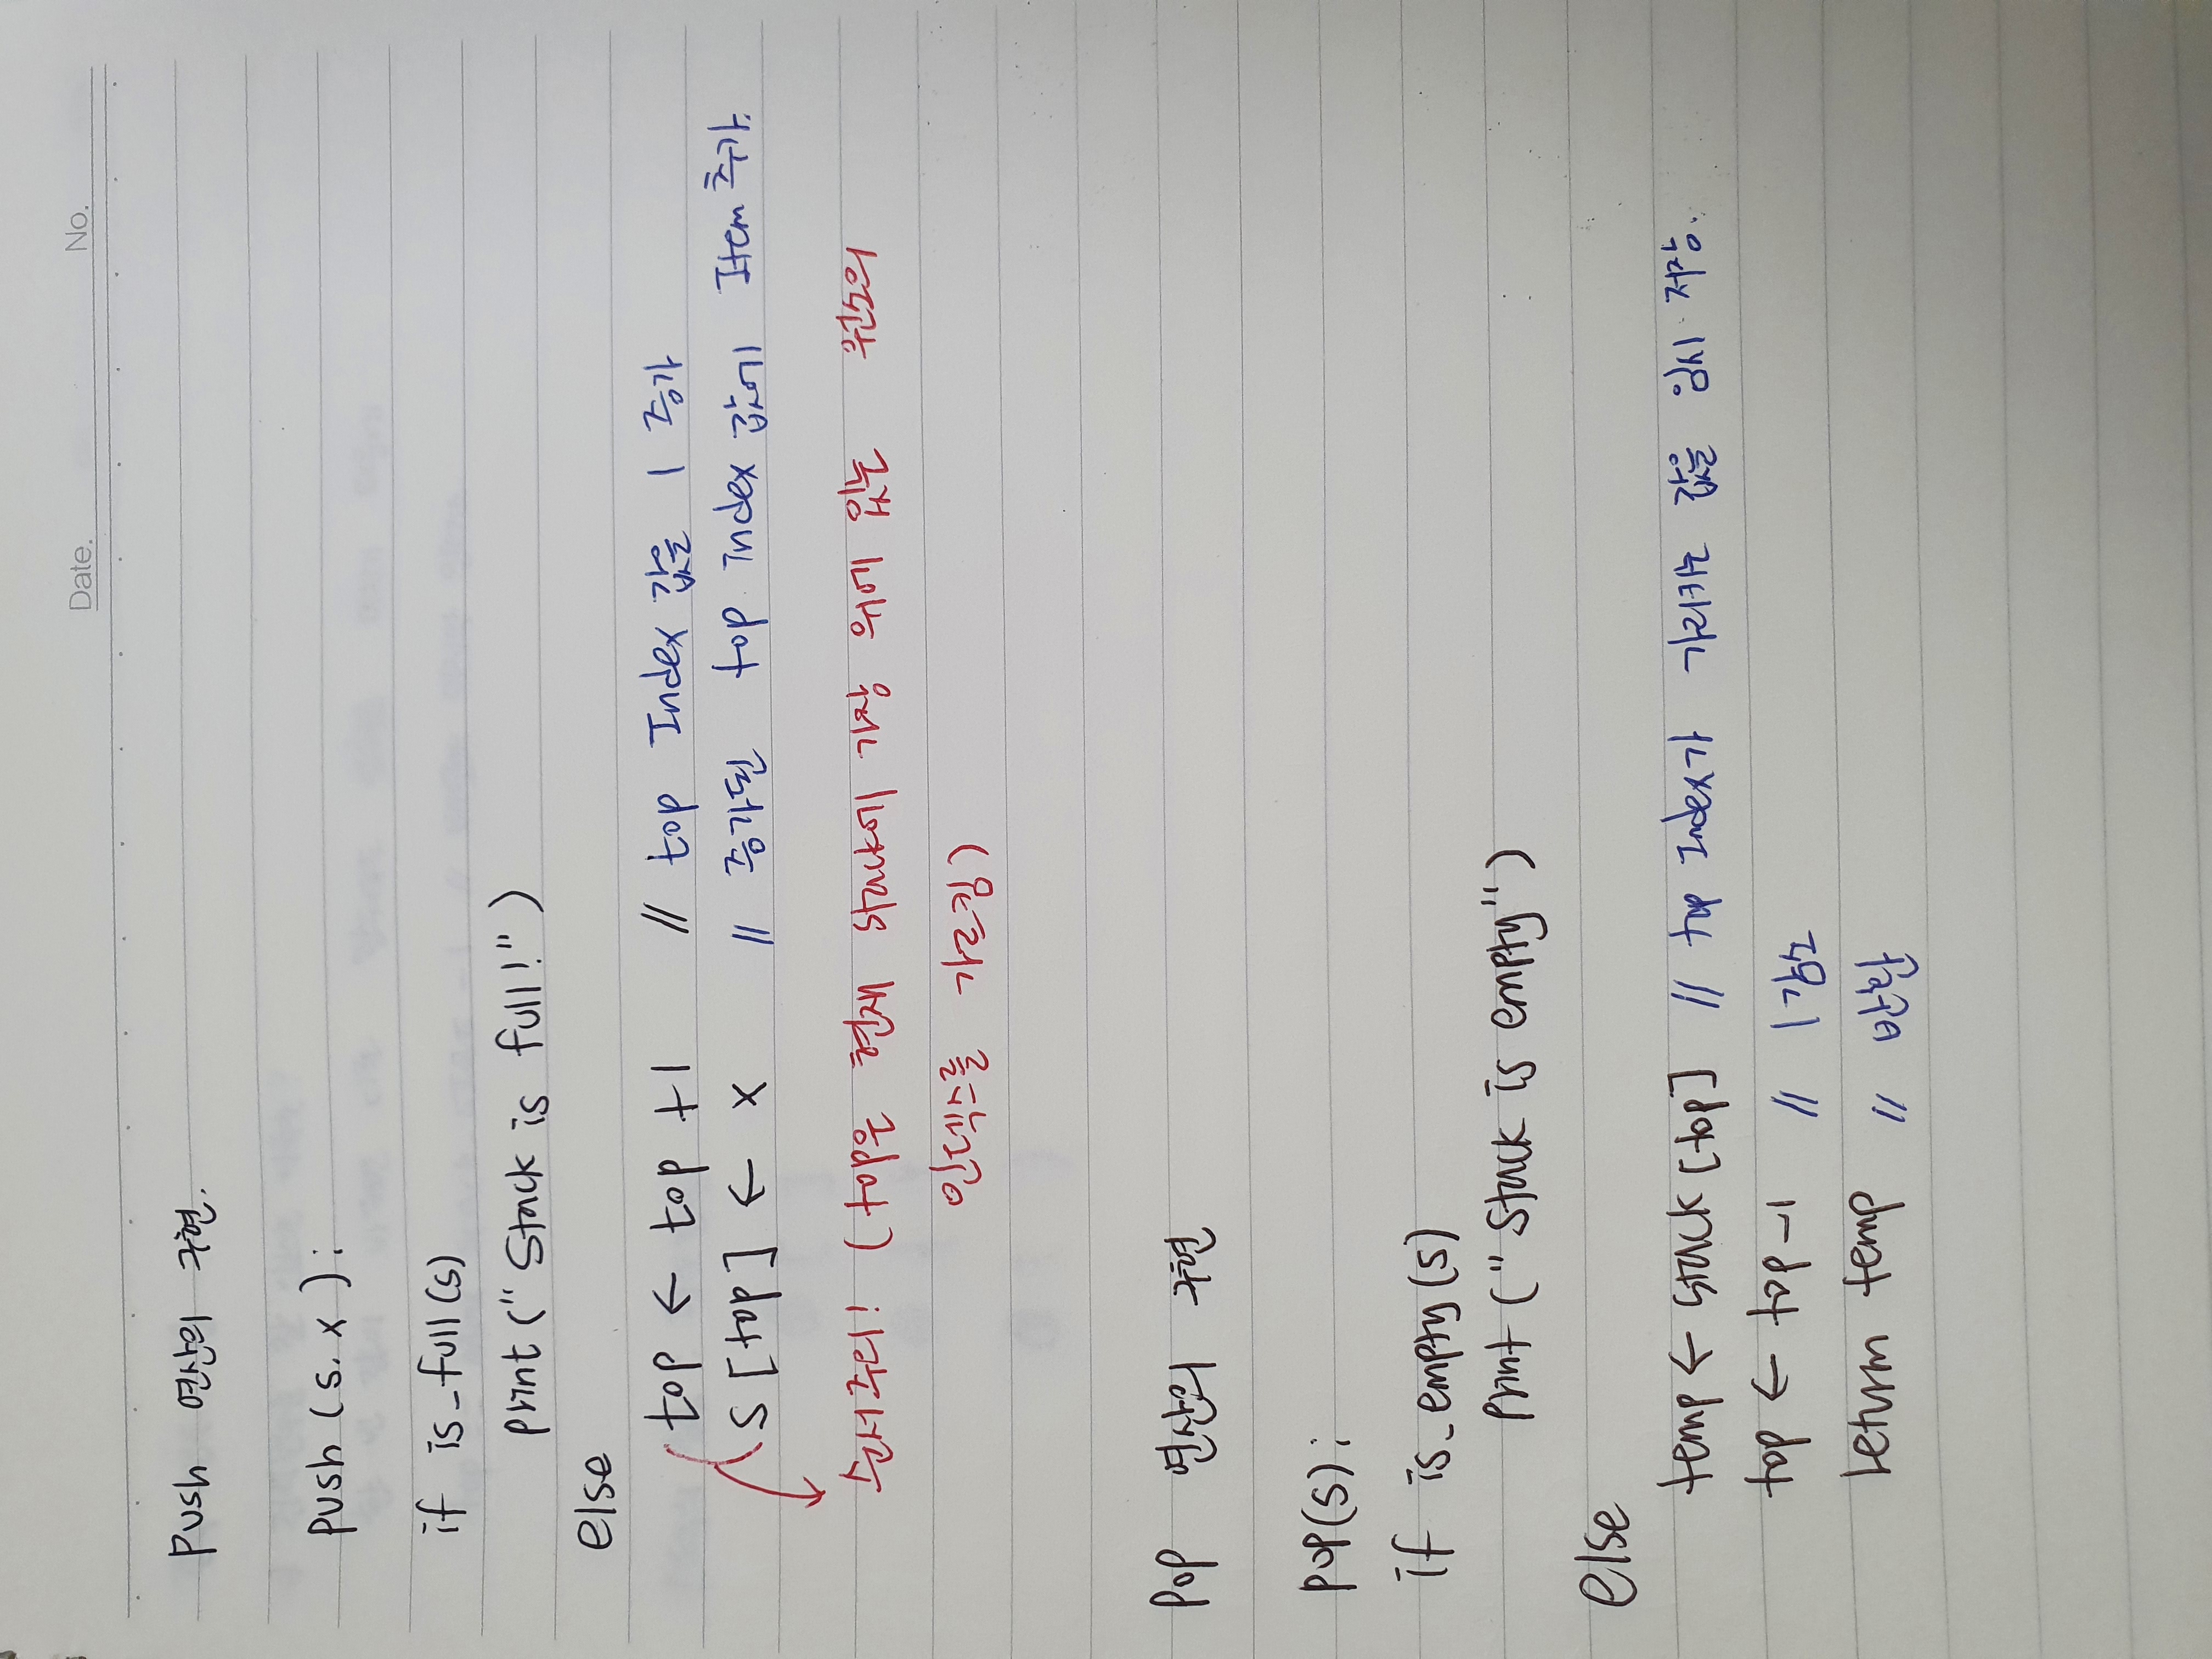 Date. No.
Push 연산의 구현.
push (s. x) :
if is_full(s)
print("Stack is full!")
else
top ← top +1 // top Index 값을 1 증가
S [top] ← x // 증가된 top index 값에 Item 추가.
순서주의! (top은 현재 stack에 가장 위에 있는 원소의
인덱스를 가르킴)
Pop 연산의 구현
pop(s) :
if is_empty(s)
print ("Stack is empty")
else
temp ← stack [top] // top Index가 가리키는 값을 임시 저장.
top ← top -1 // 1 감소
return temp // 반환